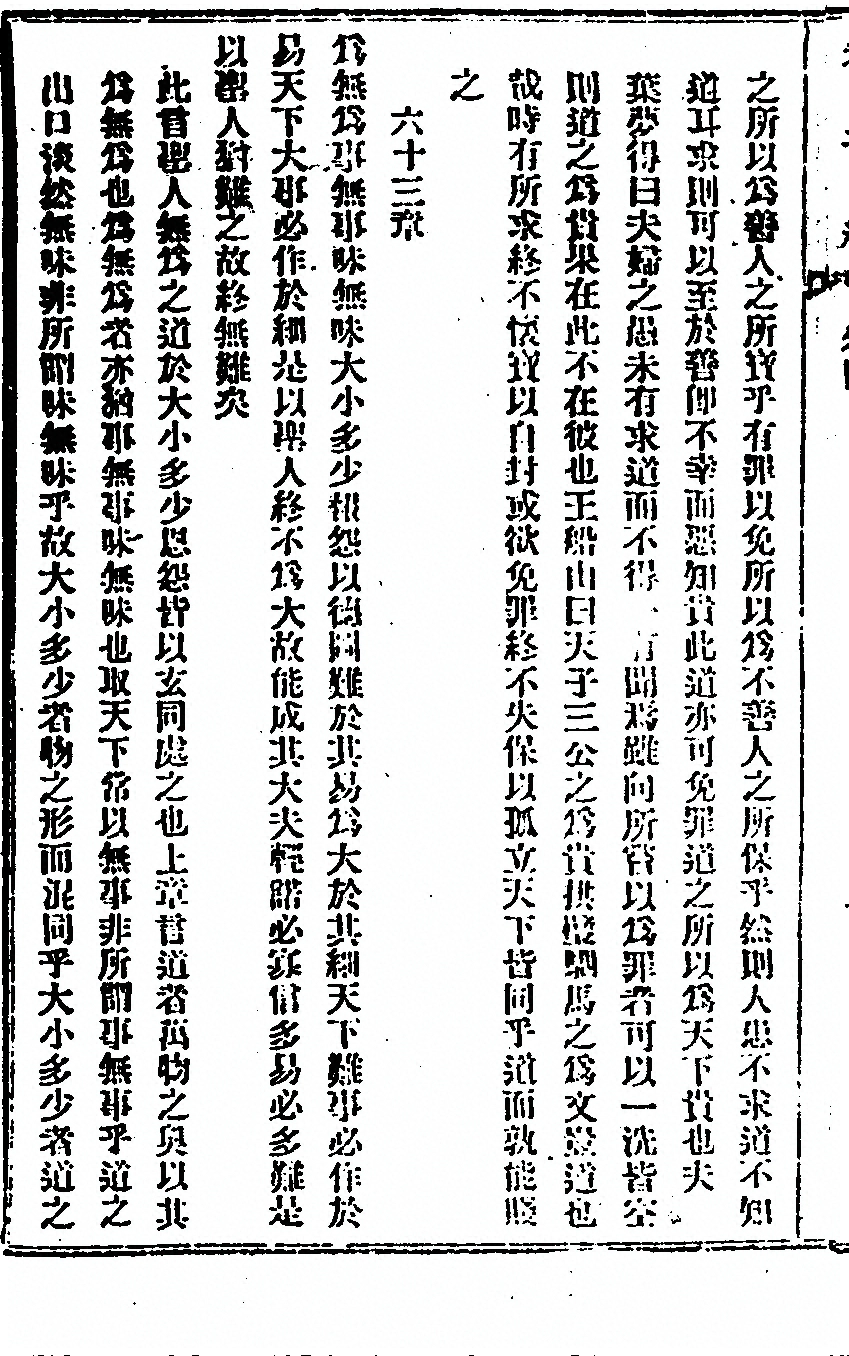 之所以爲善人之所寶乎有罪以免所以爲不善人之所保乎然則人患不求道不知
道耳求則可以至於善卽不幸而惡知貴此道亦可免罪道之所以爲天下貴也夫
葉夢得曰夫婦之愚未有求道而不得一有聞焉雖向所嘗以爲罪者可以一洗皆空
則道之爲貴果在此不在彼也王船山曰天子三公之爲貴拱璧駟馬之爲文豈道也
哉時有所求終不懷寶以自封或欲免罪終不失保以孤立天下皆同乎道而孰能賤
之
六十三章
爲無爲事無事味無味大小多少報怨以德圖難於其易爲大於其細天下難事必作於
易天下大事必作於細是以聖人終不爲大故能成其大夫輕諾必寡信多易必多難是
以聖人猶難之故終無難矣
此言聖人無爲之道於大小多少恩怨皆以玄同處之也上章言道者萬物之奧以其
爲無爲也爲無爲者亦猶事無事味無味也取天下常以無事非所謂事無事乎道之
出口淡然無味非所謂味無味乎故大小多少者物之形而混同乎大小多少者道之